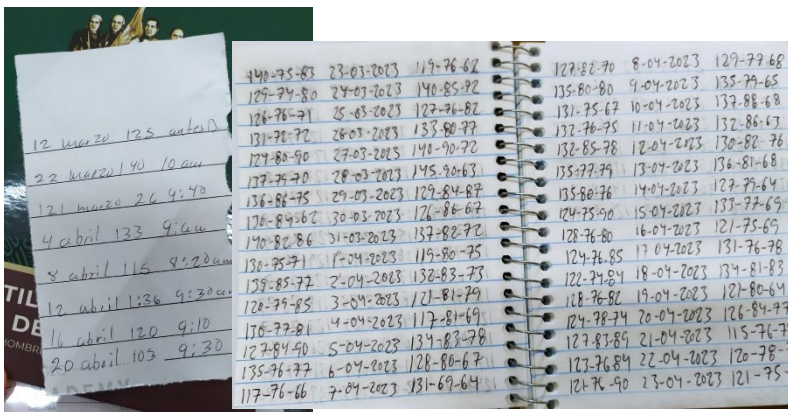 12 marzo 125 antes D.
22 marzo 140 10 am
121 marzo 26 9:40
4 abril 133 9:am
8 abril 115 8:20am
12 abril 1:36 9:30a
16 abril 120 9:10
20 abril 103 9:30
TIL
DE
140-75-83 23-03-2023 119-76-68
129-74-80 24-03-2023 140-85-72
126-76-71 25-03-2023 127-76-82
131-72-72 26-03-2023 133-80-77
124-80-90 27-03-2023 140-90-72
137-79-70 28-03-2023 145-90-63
136-86-75 29-03-2023 129-84-87
130-84-62 30-03-2023 126-86-67
140-82-86 31-03-2023 137-82-72
130-75-71 1-04-2023 119-80-75
139-85-77 2-04-2023 132-83-73
120-79-85 3-04-2023 121-81-79
130-77-81 4-04-2023 117-81-69
127-84-90 5-04-2023 134-83-78
135-76-77 6-04-2023 128-80-67
117-76-66 7-04-2023 131-69-64
127-82-70 8-04-2023 129-77-68
135-80-80 9-04-2023 135-79-65
131-75-67 10-04-2023 137-88-68
132-76-75 11-04-2023 132-86-63
132-85-78 12-04-2023 130-82-76
135-77-79 13-04-2023 136-81-68
135-80-76 14-04-2023 127-79-64
124-75-90 15-04-2023 133-77-69
128-76-80 16-04-2023 121-75-69
124-76-85 17 04-2023 131-76-78
122-74-84 18-04-2023 134-81-83
128-76-82 19-04-2023 121-80-64
124-78-74 20-04-2023 126-84-77
127-83-89 21-04-2023 115-76-7
123-76-84 22-04-2023 120-78-
121-76-90 23-04-2023 121-75-